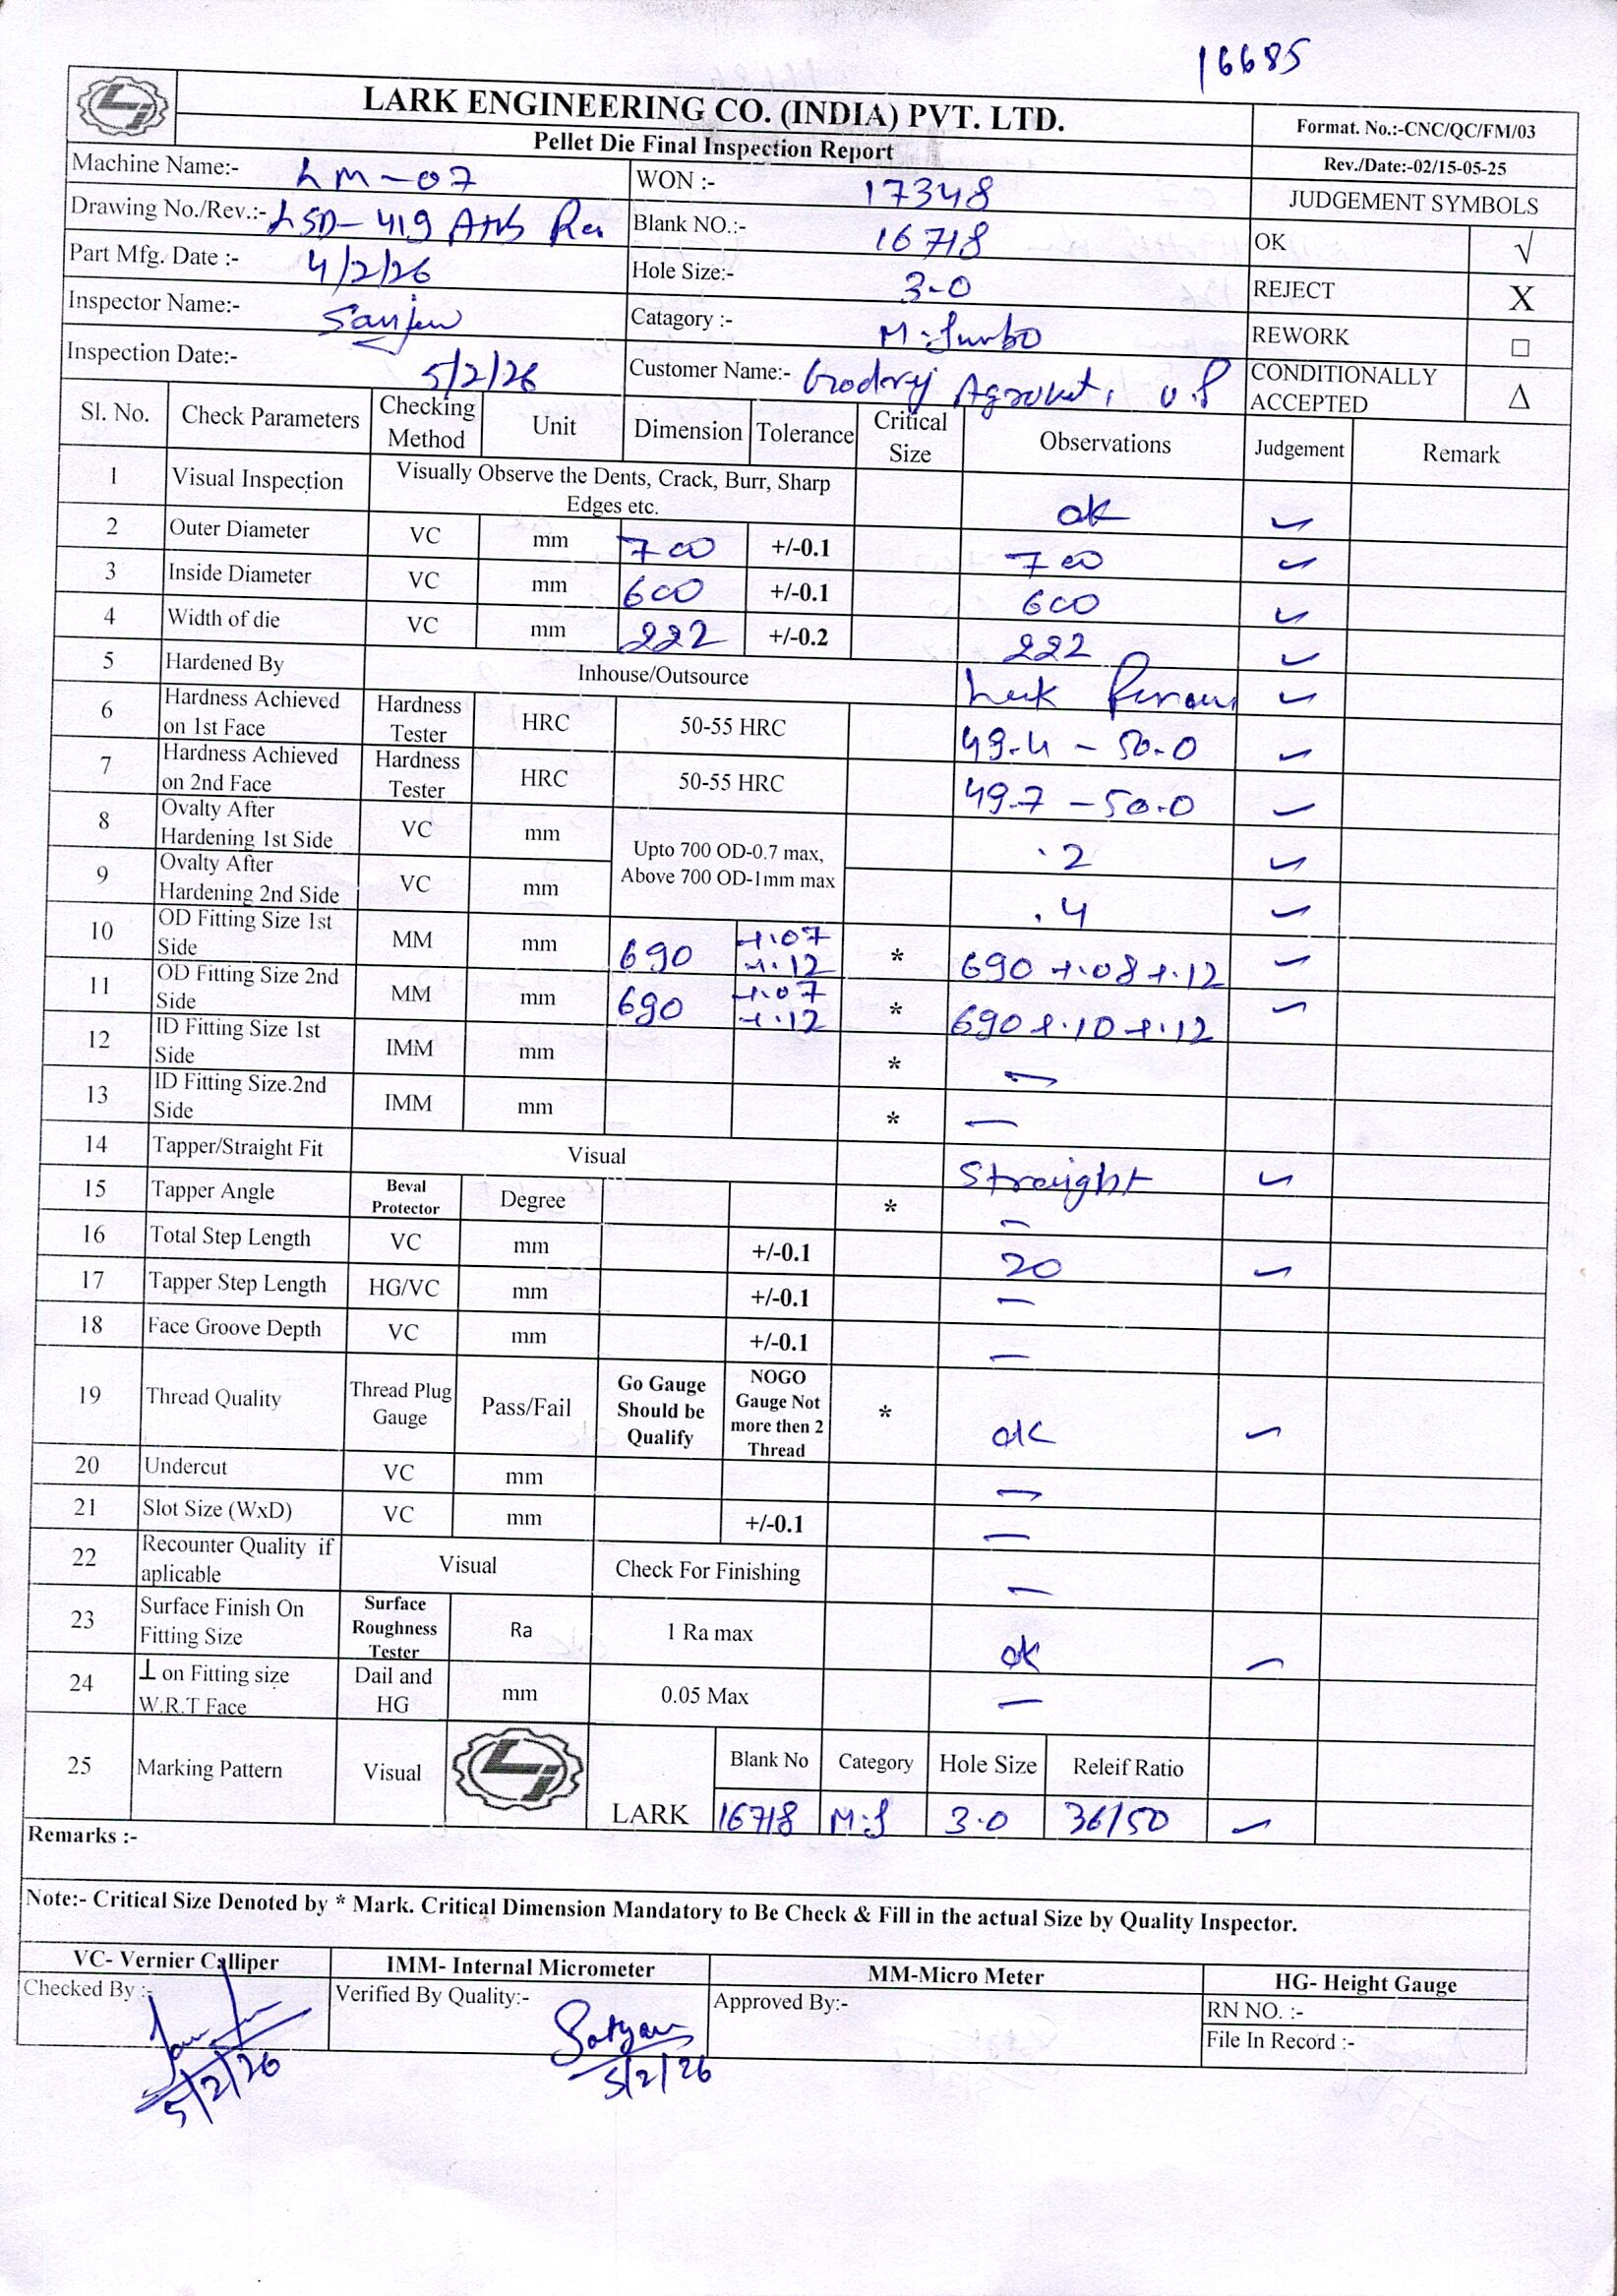 16685
LARK ENGINEERING CO. (INDIA) PVT. LTD.
Pellet Die Final Inspection Report
Format. No.:-CNC/QC/FM/03
Rev./Date:-02/15-05-25
Machine Name:- LM-07 WON :- 17348 JUDGEMENT SYMBOLS
Drawing No./Rev.:- LSD-419 Blank NO.:- 16718 OK √
Part Mfg. Date :- 4/2/26 Hole Size:- 3-0 REJECT X
Inspector Name:- Sanjeev Catagory :- M:Jumbo REWORK □
Inspection Date:- 5/2/26 Customer Name:- Godrej Agrovet, U.P CONDITIONALLY ACCEPTED Δ
Sl. No. Check Parameters Checking Method Unit Dimension Tolerance Critical Size Observations Judgement Remark
1 Visual Inspection Visually Observe the Dents, Crack, Burr, Sharp Edges etc. ok ✓
2 Outer Diameter VC mm 700 +/-0.1 700 ✓
3 Inside Diameter VC mm 600 +/-0.1 600 ✓
4 Width of die VC mm 222 +/-0.2 222 ✓
5 Hardened By Inhouse/Outsource ✓
6 Hardness Achieved on 1st Face Hardness Tester HRC 50-55 HRC 49.4 - 50.0 ✓
7 Hardness Achieved on 2nd Face Hardness Tester HRC 50-55 HRC 49.7 - 50.0 ✓
8 Ovalty After Hardening 1st Side VC mm Upto 700 OD-0.7 max, Above 700 OD-1mm max .2 ✓
9 Ovalty After Hardening 2nd Side VC mm .4 ✓
10 OD Fitting Size 1st Side MM mm 690 +.07 +.12 * 690 +.08 +.12 ✓
11 OD Fitting Size 2nd Side MM mm 690 +.07 +.12 * 690 +.10 +.12 ✓
12 ID Fitting Size 1st Side IMM mm * —
13 ID Fitting Size.2nd Side IMM mm * —
14 Tapper/Straight Fit Visual Straight ✓
15 Tapper Angle Beval Protector Degree * —
16 Total Step Length VC mm +/-0.1 20 ✓
17 Tapper Step Length HG/VC mm +/-0.1 —
18 Face Groove Depth VC mm +/-0.1 —
19 Thread Quality Thread Plug Gauge Pass/Fail Go Gauge Should be Qualify NOGO Gauge Not more then 2 Thread * ok ✓
20 Undercut VC mm —
21 Slot Size (WxD) VC mm +/-0.1 —
22 Recounter Quality if aplicable Visual Check For Finishing —
23 Surface Finish On Fitting Size Surface Roughness Tester Ra 1 Ra max ok ✓
24 ⊥ on Fitting size W.R.T Face Dail and HG mm 0.05 Max —
25 Marking Pattern Visual LARK Blank No Category Hole Size Releif Ratio
16718 M:J 3.0 36/50 ✓
Remarks :-
Note:- Critical Size Denoted by * Mark. Critical Dimension Mandatory to Be Check & Fill in the actual Size by Quality Inspector.
VC- Vernier Calliper IMM- Internal Micrometer MM-Micro Meter HG- Height Gauge
Checked By :- Verified By Quality:- Approved By:- RN NO. :-
File In Record :-
Satyam
5/2/26 5/2/26